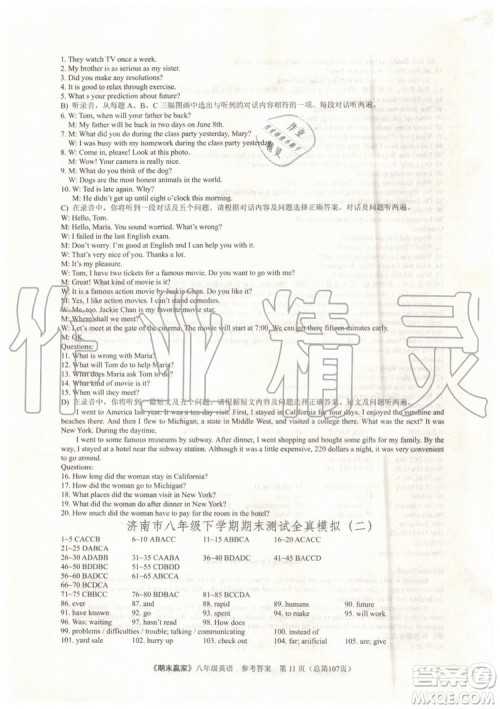 1. They watch TV once a week.
2. My brother is as serious as my sister.
3. Did you make any resolutions?
4. I want to change my life.
5. What s your prediction about future?
B) 听录音，从每题 A、B、C 三幅图画中选出与听到的对话内容相符的选项，每段对话听两遍。
6. W: Tom, when will your father be back?
M: My father will be back in two days on June 8th.
7. M: What did you do during the class party yesterday, Mary?
W: I was busy with my homework during the class party yesterday.
8. W: Could I use your camera, please?
M: Wow! Your camera is really nice.
9. M: What do you think of the dog?
W: Dogs are the most honest animals in the world.
10. W: Ted is late again.
M: Yes, he didn't get up until eight o'clock this morning.
C) 在录音中，你将听到一段对话及五个问题，请根据对话内容选择正确答案。对话听两遍。
W: Hello, Tom.
M: Hello, Maria. You sound worried.
W: I failed in the last English exam.
M: Don't worry. I'll help you with your English.
W: Thank you.
M: It's my pleasure.
W: Tom, I have two tickets for a famous movie. Do you want to go with me?
M: Great! What kind of movie is it?
W: It is a famous action movie by Jackie Chan.
M: Yes, I like action movies and comedies.
W: Me, too. Jackie Chan is a very famous movie star.
M: Where shall we meet?
W: Let's meet at the gate of the cinema. The movie will start at 7:00. We can meet fifteen minutes earlier.
M: OK.
Questions:
11. What is wrong with Maria?
12. What does Maria ask Tom to do?
13. What movies does Tom like?
14. What kind of movie is it?
15. When will they meet?
D) 在录音中，你将听到一篇短文及五个问题，请根据短文内容及问题选择正确答案。短文及问题听两遍。
I went to America last year. It was a ten-day visit. I stayed in California for four days. I enjoyed the sunshine and beaches there. Then I took a plane and flew to Michigan. I stayed with a friend for two days. Then we went to New York. During the daytime.
I went to some famous museums by subway. After that, I went shopping and bought some gifts for my family. At night I stayed at a hotel near the subway station. Although it was a little expensive, 220 dollars a night, it was very comfortable.
Questions:
16. How long did the woman stay in California?
17. How did the woman go to Michigan?
18. What did the woman visit in New York?
19. Where did the woman stay in New York?
20. How much did the woman pay for the room in the hotel?
济南市八年级下学期期末测试全真模拟（二）
1~5 CACCB 6~10 ABACC 11~15 ACABB 16~20 ACACC
21~25 DABCA
26~30 BACCD 31~35 ABABA 36~40 CADDC 41~45 BCADB
46~50 DBCDC 51~55 CCDBA 56~60 CBBDC 61~65 CBACC
66~70 BCDCA
71~75 CBBCC 76~80 BDCEA 81~85 GCBFA
86. ever 87. and 88. rapid 89. in 90. social
91. have known 92. to go 93. using 94. had left 95. started
96. Was; waiting 97. hasn't heard 98. since; moved
99. problems / difficulties / trouble; talking / communicating 100. instead of
101. yard sale 102. hurry 103. import 104. simple 105. are; giving
《期末赢家》八年级英语 参考答案 第11页（总第107页）
作业精灵